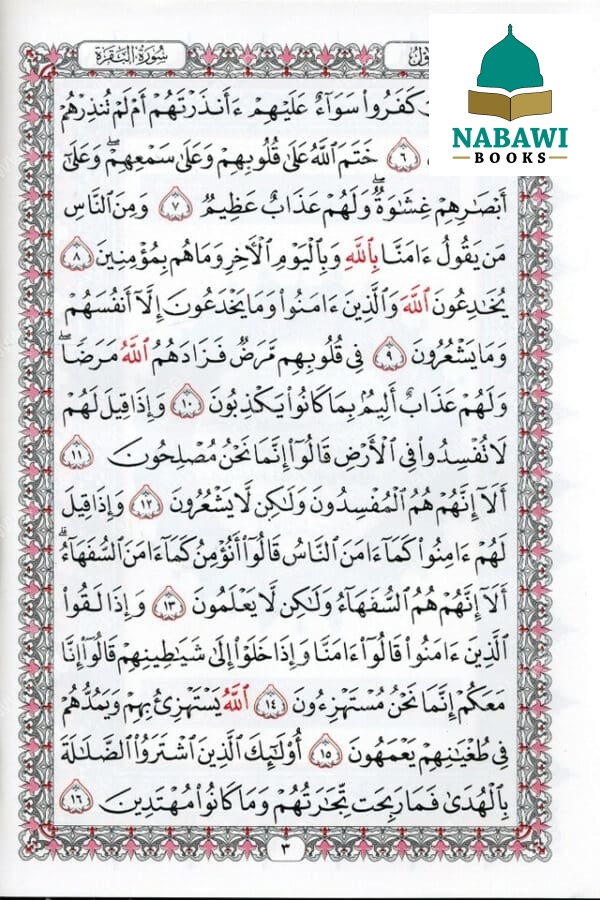 سُورَةُ البَقَرَةِ
NABAWI
BOOKS
كَفَرُوا۟ سَوَآءٌ عَلَيْهِمْ ءَأَنذَرْتَهُمْ أَمْ لَمْ تُنذِرْهُمْ
٦ خَتَمَ ٱللَّهُ عَلَىٰ قُلُوبِهِمْ وَعَلَىٰ سَمْعِهِمْ ۖ وَعَلَىٰٓ
أَبْصَٰرِهِمْ غِشَٰوَةٌ ۖ وَلَهُمْ عَذَابٌ عَظِيمٌ ٧ وَمِنَ ٱلنَّاسِ
مَن يَقُولُ ءَامَنَّا بِٱللَّهِ وَبِٱلْيَوْمِ ٱلْءَاخِرِ وَمَا هُم بِمُؤْمِنِينَ ٨
يُخَٰدِعُونَ ٱللَّهَ وَٱلَّذِينَ ءَامَنُوا۟ وَمَا يَخْدَعُونَ إِلَّآ أَنفُسَهُمْ
وَمَا يَشْعُرُونَ ٩ فِى قُلُوبِهِم مَّرَضٌ فَزَادَهُمُ ٱللَّهُ مَرَضًا ۖ
وَلَهُمْ عَذَابٌ أَلِيمٌۢ بِمَا كَانُوا۟ يَكْذِبُونَ ١٠ وَإِذَا قِيلَ لَهُمْ
لَا تُفْسِدُوا۟ فِى ٱلْأَرْضِ قَالُوٓا۟ إِنَّمَا نَحْنُ مُصْلِحُونَ ١١
أَلَآ إِنَّهُمْ هُمُ ٱلْمُفْسِدُونَ وَلَٰكِن لَّا يَشْعُرُونَ ١٢ وَإِذَا قِيلَ
لَهُمْ ءَامِنُوا۟ كَمَآ ءَامَنَ ٱلنَّاسُ قَالُوٓا۟ أَنُؤْمِنُ كَمَآ ءَامَنَ ٱلسُّفَهَآءُ ۗ
أَلَآ إِنَّهُمْ هُمُ ٱلسُّفَهَآءُ وَلَٰكِن لَّا يَعْلَمُونَ ١٣ وَإِذَا لَقُوا۟
ٱلَّذِينَ ءَامَنُوا۟ قَالُوٓا۟ ءَامَنَّا وَإِذَا خَلَوْا۟ إِلَىٰ شَيَٰطِينِهِمْ قَالُوٓا۟ إِنَّا
مَعَكُمْ إِنَّمَا نَحْنُ مُسْتَهْزِءُونَ ١٤ ٱللَّهُ يَسْتَهْزِئُ بِهِمْ وَيَمُدُّهُمْ
فِى طُغْيَٰنِهِمْ يَعْمَهُونَ ١٥ أُو۟لَٰٓئِكَ ٱلَّذِينَ ٱشْتَرَوُا۟ ٱلضَّلَٰلَةَ
بِٱلْهُدَىٰ فَمَا رَبِحَت تِّجَٰرَتُهُمْ وَمَا كَانُوا۟ مُهْتَدِينَ ١٦
٣